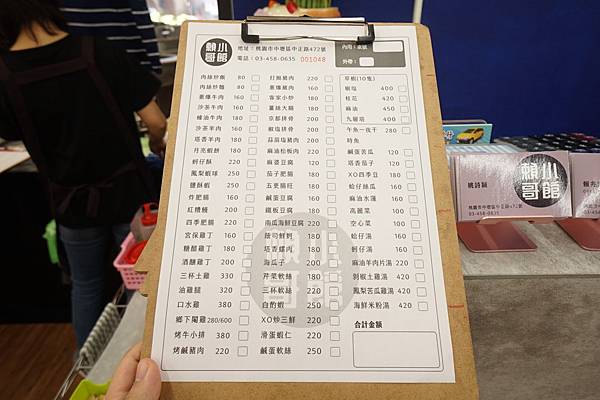 賴小哥館
地址：桃園市中壢區中正路472號
電話：03-458-0635 001048
內用：桌號
外帶：
肉絲炒飯 80
肉絲炒麵 80
蔥爆牛肉 160
沙茶牛肉 160
沙茶羊肉 160
塔香羊肉 190
月亮蝦餅 180
蚵仔酥 220
鳳梨蝦球 250
鹽酥蝦 250
炸肥腸 160
紅糟鰻 200
四季肥腸 220
宮保雞丁 160
糖醋雞丁 180
酒釀雞丁 160
三杯土雞 330
油雞腿 320
口水雞 380
鄉下閹雞 280/600
烤牛小排 380
烤鹹豬肉 220
打拋豬肉 220
蔥爆豬肉 160
客家小炒 180
薑絲大腸 180
京都排骨 200
椒鹽排骨 200
蒜泥塩豬肉 200
麻油松板肉 220
麻婆豆腐 180
茄子肥腸 180
五更腸旺 180
鹹蛋豆腐 160
鐵板豆腐 180
南瓜海鮮豆腐 220
豉司蚵蚵 180
塔香螺肉 180
海瓜子 220
芹菜軟絲 180
三杯軟絲 220
白酌蝦 250
XO炒三鮮 220
滑蛋蝦仁 220
鹹蛋軟絲 250
草蝦(10隻)
椒塩 400
桂花 420
麻油 450
九層塔 400
午魚一夜干 280
時魚
鹹蛋苦瓜 120
塔香茄子 120
XO四季豆 180
蛤仔絲瓜 160
麻油水蓮 160
高麗菜 100
空心菜 100
蛤仔湯 160
蚵仔湯 160
麻油羊肉片湯 220
剝椒土雞湯 420
鳳梨苦瓜雞湯 420
海鮮米粉湯 420
合計金額
賴小哥館
桃詩穎
桃園市中壢區中正路472號
03-458-0635